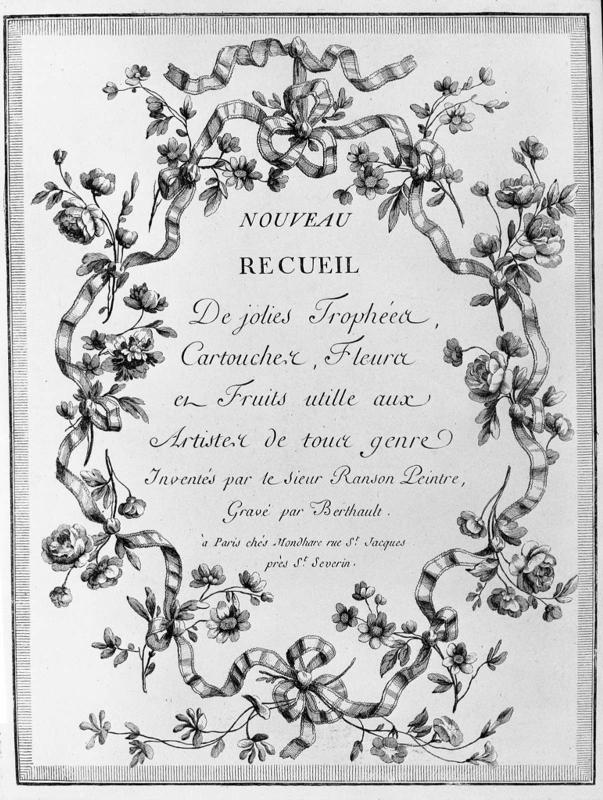 NOUVEAU
RECUEIL
De jolies Trophées,
Cartouches, Fleurs
et Fruits utille aux
Artistes de tous genre
Inventés par le sieur Ranson Peintre,
Gravé par Berthault.
à Paris chés Mondhare rue St. Jacques
près St. Severin.